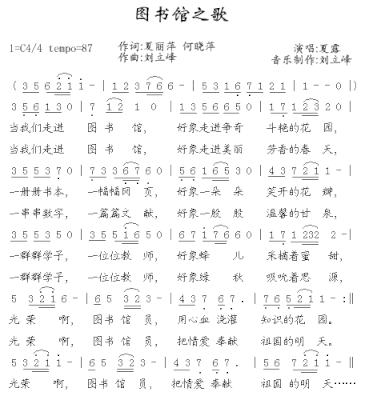 图书馆之歌
1=C4/4 tempo=87 作词:夏丽萍 何晓萍 演唱:夏露
作曲:刘立峰 音乐制作:刘立峰
( 3 5 6 2 1 1 - | 1 2 3 7 6 6 - | 5 5 3 1 6 7 1 2 1 | 1 - - 0 ) |
3 5 6 1 3 0 | 7 1 2 1 0 | 1 3 5 6 6 5 0 | 1 7 1 2 3 2 0 |
当我们走进 图 书 馆, 好象走进争奇 斗艳的花 园,
当我们走进 图 书 馆, 好象走进美丽 芳香的春 天,
3 5 5 3 5 0 | 7 3 3 6 7 6 0 | 5 6 1 6 5 5 0 | 4 3 7 2 1 1 - |
一册册书本, 一幅幅网 页, 好象一朵 朵 笑开的花 瓣,
一串串数字, 一篇篇文 献, 好象一股 股 温馨的甘 泉,
3 5 5 3 5 0 | 3 5 5 1 6 5 0 | 6 7 1 7 6 6 0 | 1 7 1 2 3 2 2 - |
一群群学子, 一位位教 师, 好象蜂 儿 采撷着蜜 甜,
一群群学子, 一位位教 师, 好象绿 秋 吸吮着思 源,
5 3 2 1 6 - | 6 5 3 2 3 - | 4 3 7 6 7 . | 7 6 5 2 1 1 - :||
光 荣 啊, 图书 馆 员, 用心血 浇灌 知识的花 园。
光 荣 啊, 图书 馆 员, 把情爱 奉献 祖国的明 天。
5 3 2 1 - | 6 5 3 2 3 - | 4 3 2 6 7 . | 5 6 7 2 1 1 - ||
光 荣 啊, 图书 馆 员, 把情爱 奉献 祖国 的明 天……